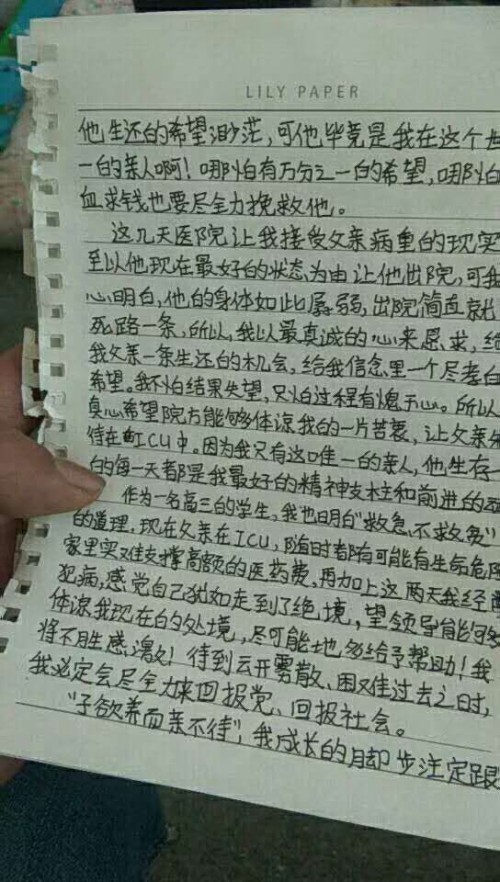 LILY PAPER
他生还的希望渺茫,可他毕竟是我在这个世
一的亲人啊!哪怕有万分之一的希望,哪怕
血求钱也要尽全力挽救他。
这几天医院让我接受父亲病重的现实
至以他现在最好的状态为由让他出院,可我
心明白,他的身体如此孱弱,出院简直就
死路一条,所以,我以最真诚的心来恳求,给
我父亲一条生还的机会,给我信念里一个尽孝的
希望。我不怕结果失望,只怕过程有愧于心。所以
真心希望院方能够体谅我的一片苦衷,让父亲
待在ICU中。因为我只有这唯一的亲人,他生存
的每一天都是我最好的精神支柱和前进的动
作为一名高三的学生,我也明白"救急,不求贫"
的道理,现在父亲在ICU,随时都有可能有生命危险
家里实难支撑高额的医药费,再加上这两天我经
犯病,感觉自己犹如走到了绝境,望领导能够
体谅我现在的处境,尽可能地多给予帮助!我
将不胜感激!待到云开雾散、困难过去之时,
我必定会尽全力来回报党、回报社会。
"子欲养而亲不待",我成长的脚步注定跟